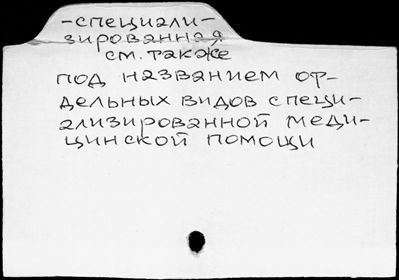 -специали-
зированная
см. также
под названием от-
дельных видов специ-
ализированной меди-
цинской помощи